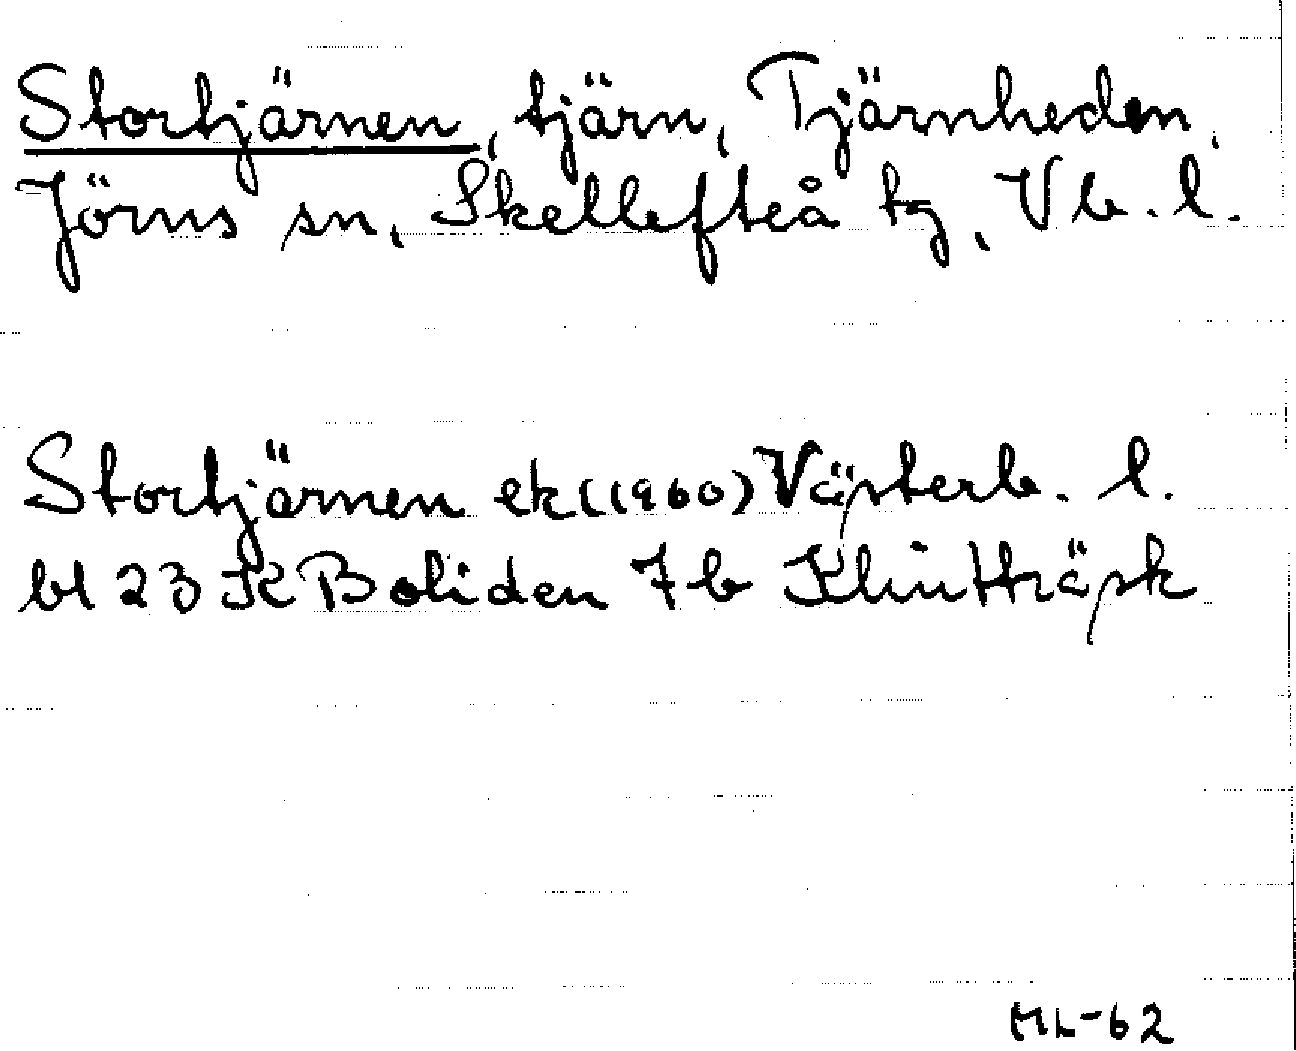 Stortjärnen, tjärn, Tjärnheden,
Jörns sn, Skellefteå tg, Vb. l.
Stortjärnen ek (1960) Västerb. l.
bl 23 K Boliden 7 b Klintträsk
ML-62